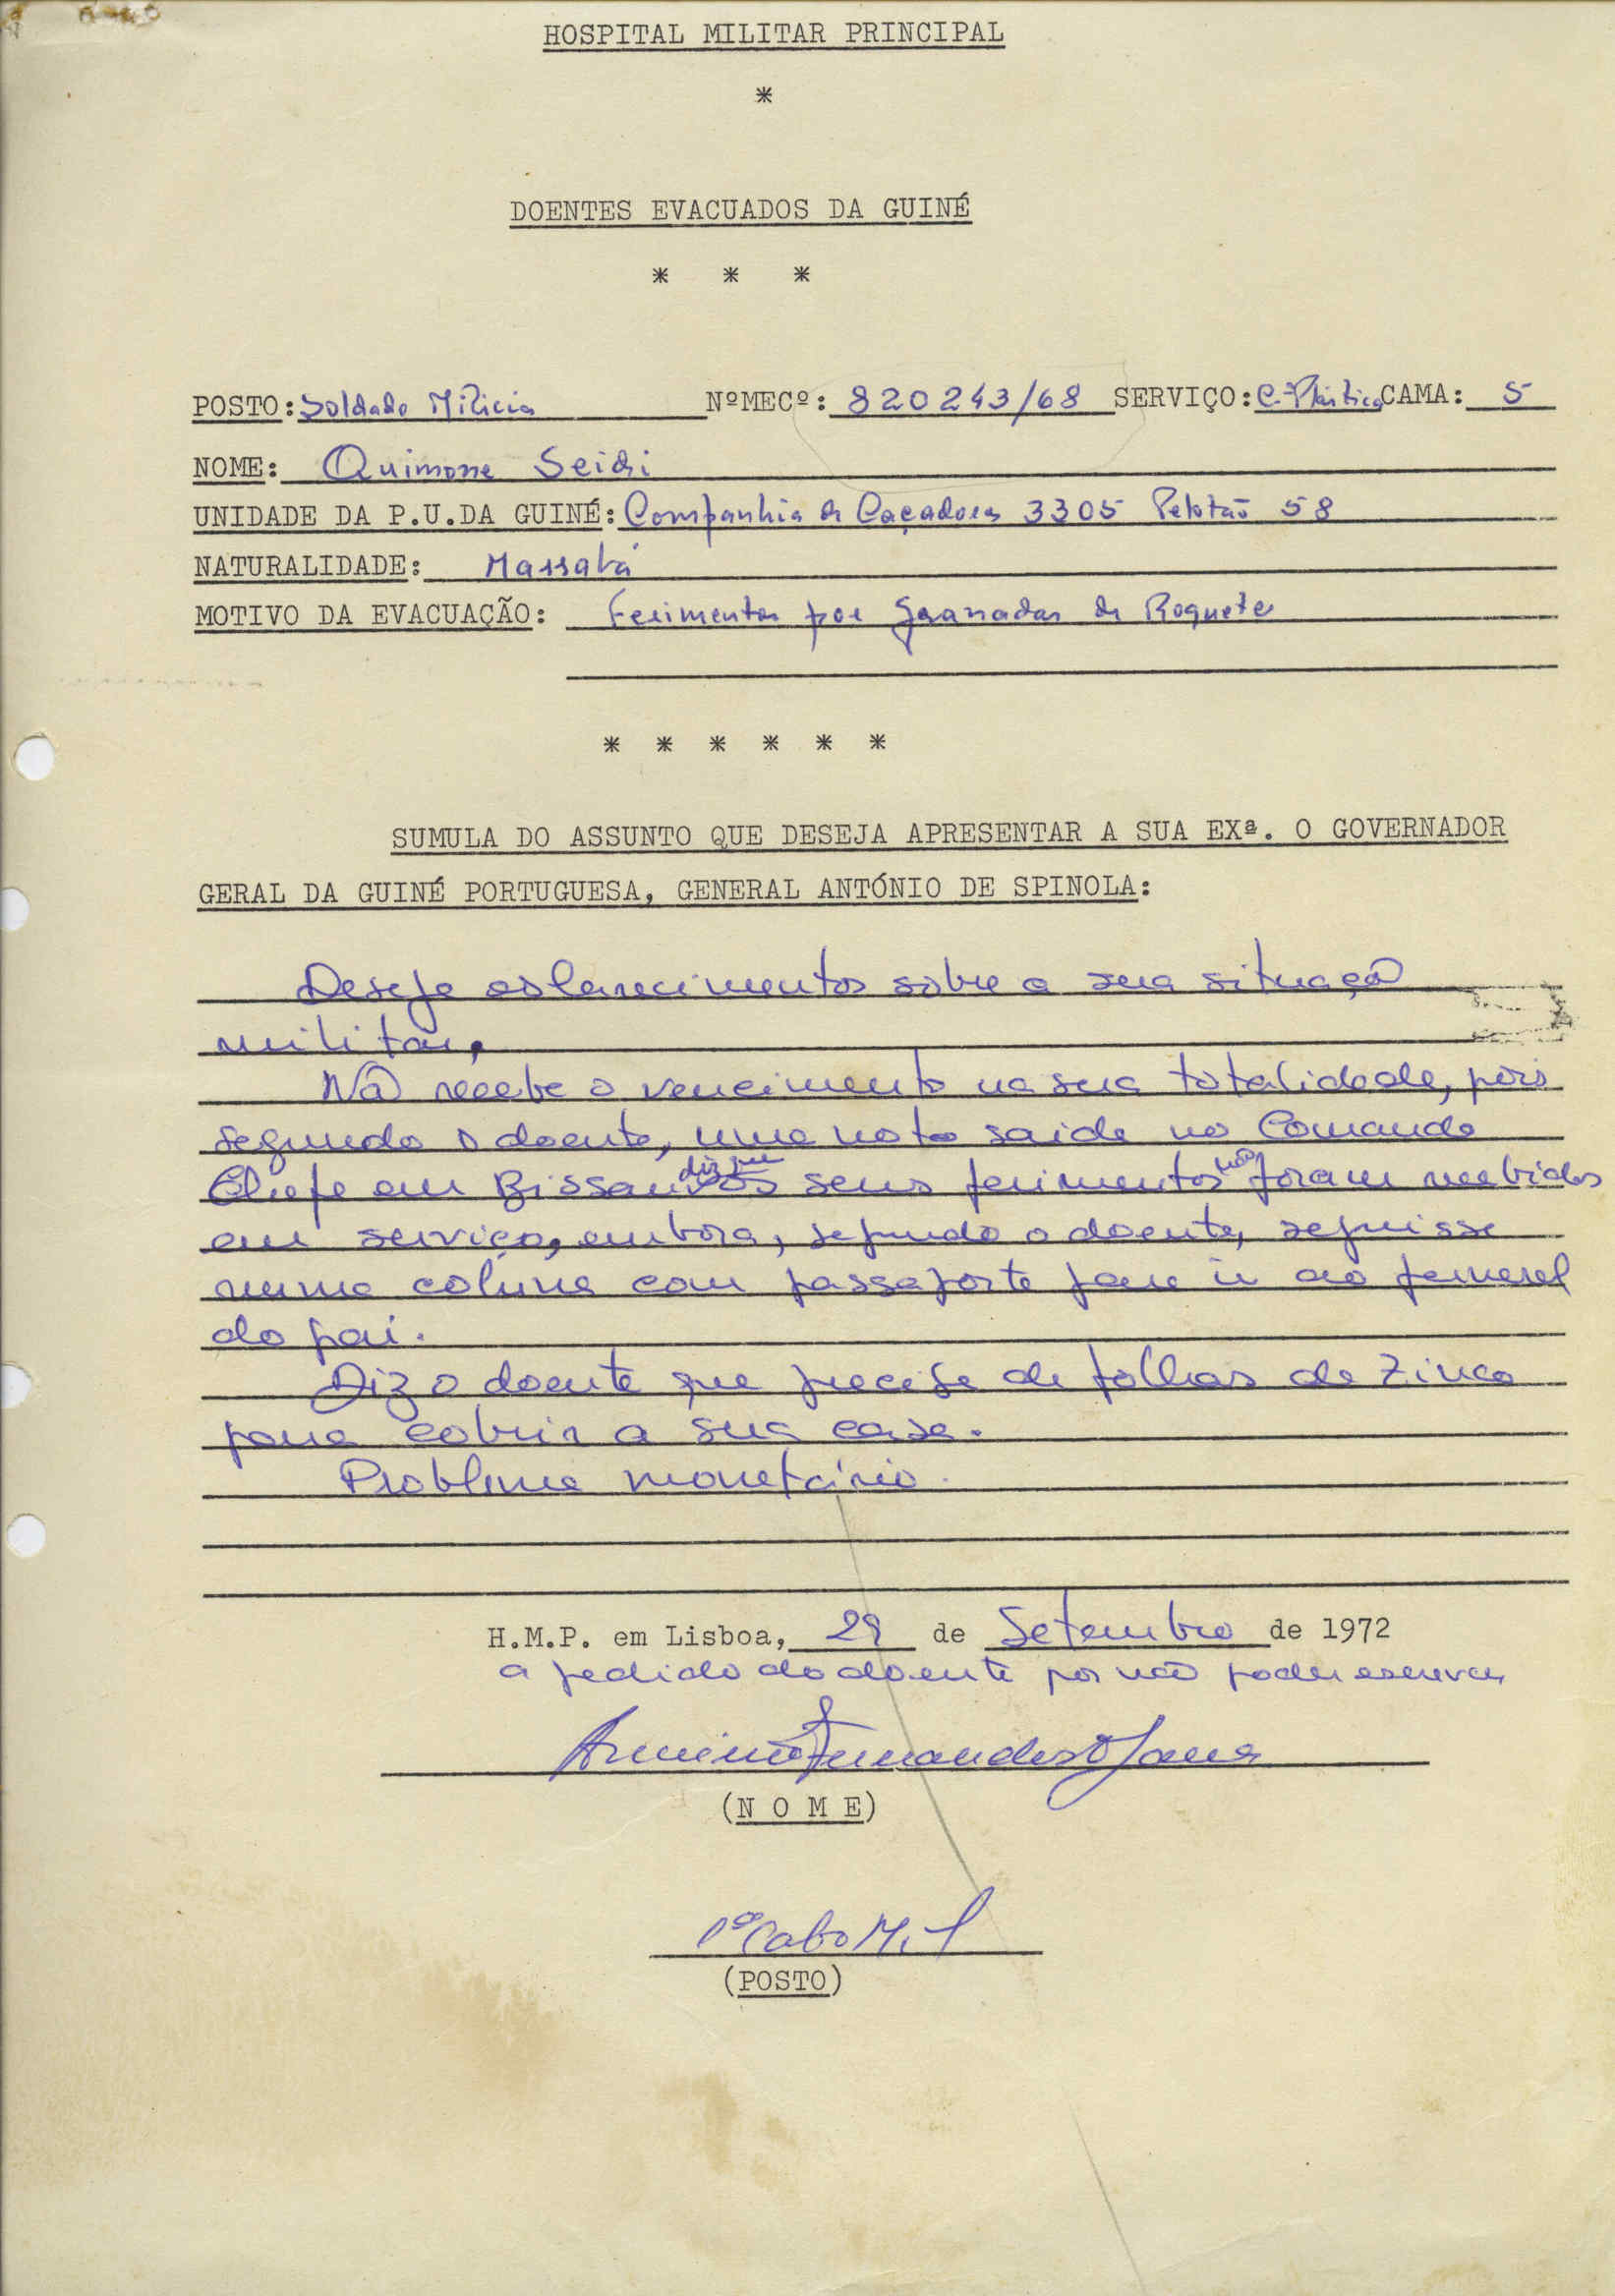 HOSPITAL MILITAR PRINCIPAL
*
DOENTES EVACUADOS DA GUINÉ
* * *
POSTO: Soldado Milicia NºMECº: 820243/68 SERVIÇO: C. Plástica CAMA: 5
NOME: Quimone Seidi
UNIDADE DA P.U.DA GUINÉ: Companhia de Caçadores 3305 Pelotão 58
NATURALIDADE: Massabá
MOTIVO DA EVACUAÇÃO: Ferimentos por Granadas de Roquete
* * * * * *
SUMULA DO ASSUNTO QUE DESEJA APRESENTAR A SUA EXª. O GOVERNADOR
GERAL DA GUINÉ PORTUGUESA, GENERAL ANTÓNIO DE SPINOLA:
Deseja esclarecimentos sobre a sua situação
militar.
Não recebe o vencimento na sua totalidade, pois
segundo o doente, uma nota saida no Comando
Chefe em Bissau diz que os seus ferimentos não foram recebidos
em serviço, embora, segundo o doente, seguisse
numa coluna com passaporte para ir ao funeral
do pai.
Diz o doente que precisa de folhas de zinco
para cobrir a sua casa.
Problema monetário.
H.M.P. em Lisboa, 29 de Setembro de 1972
a pedido do doente por não poder escrever
Fernandes
(N O M E)
1º Cabo Mil
(POSTO)